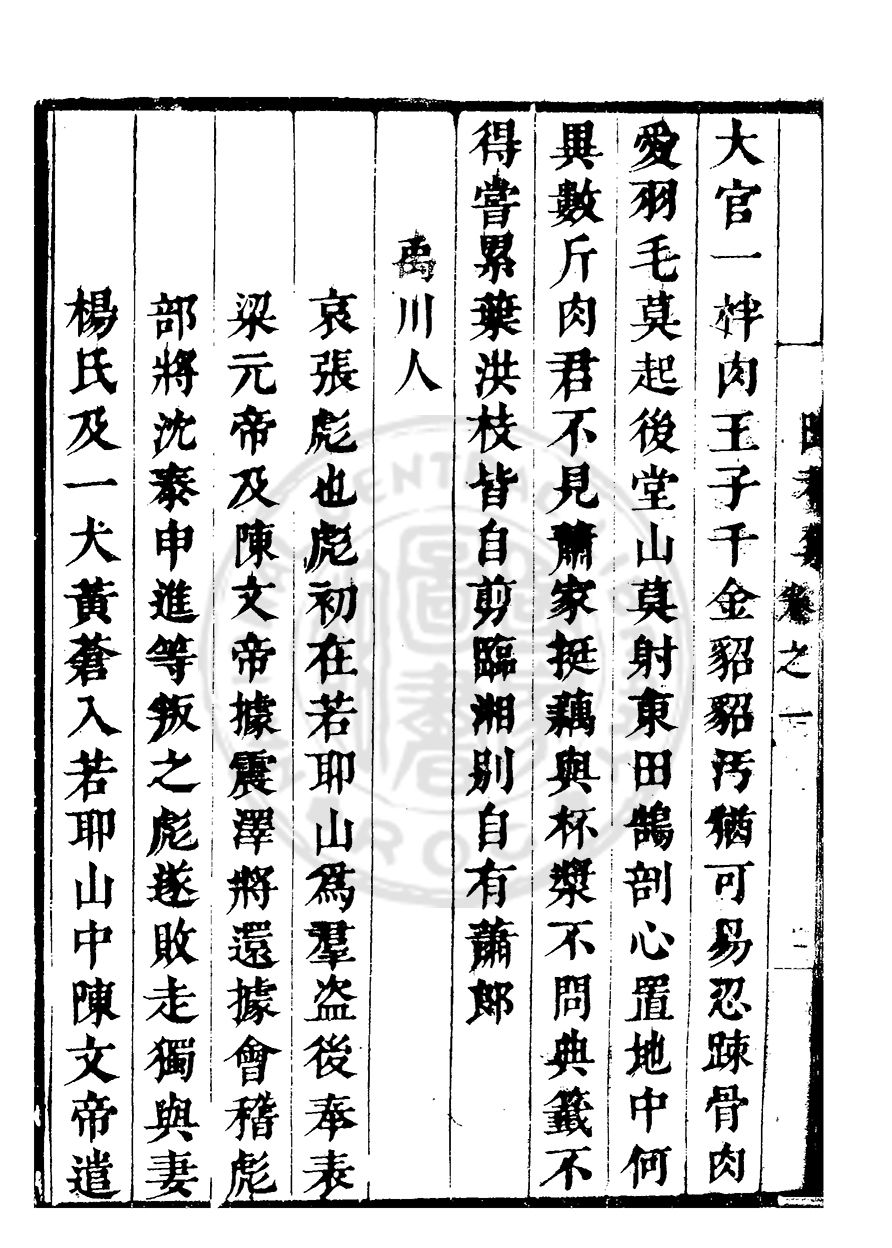 大官一柈肉王子千金貂貂汚猶可易忍踈骨肉
愛羽毛莫起後堂山莫射東田鵠剖心置地中何
異數斤肉君不見蕭家挺藕與杯漿不問典籖不
得嘗累葉洪枝皆自剪臨湘别自有蕭郎
禹川人
哀張彪也彪初在若耶山爲羣盗後奉表
梁元帝及陳文帝據震澤將還據會稽彪
部將沈泰申進等叛之彪遂敗走獨與妻
楊氏及一犬黃蒼入若耶山中陳文帝遣
卷之一
二
圖書